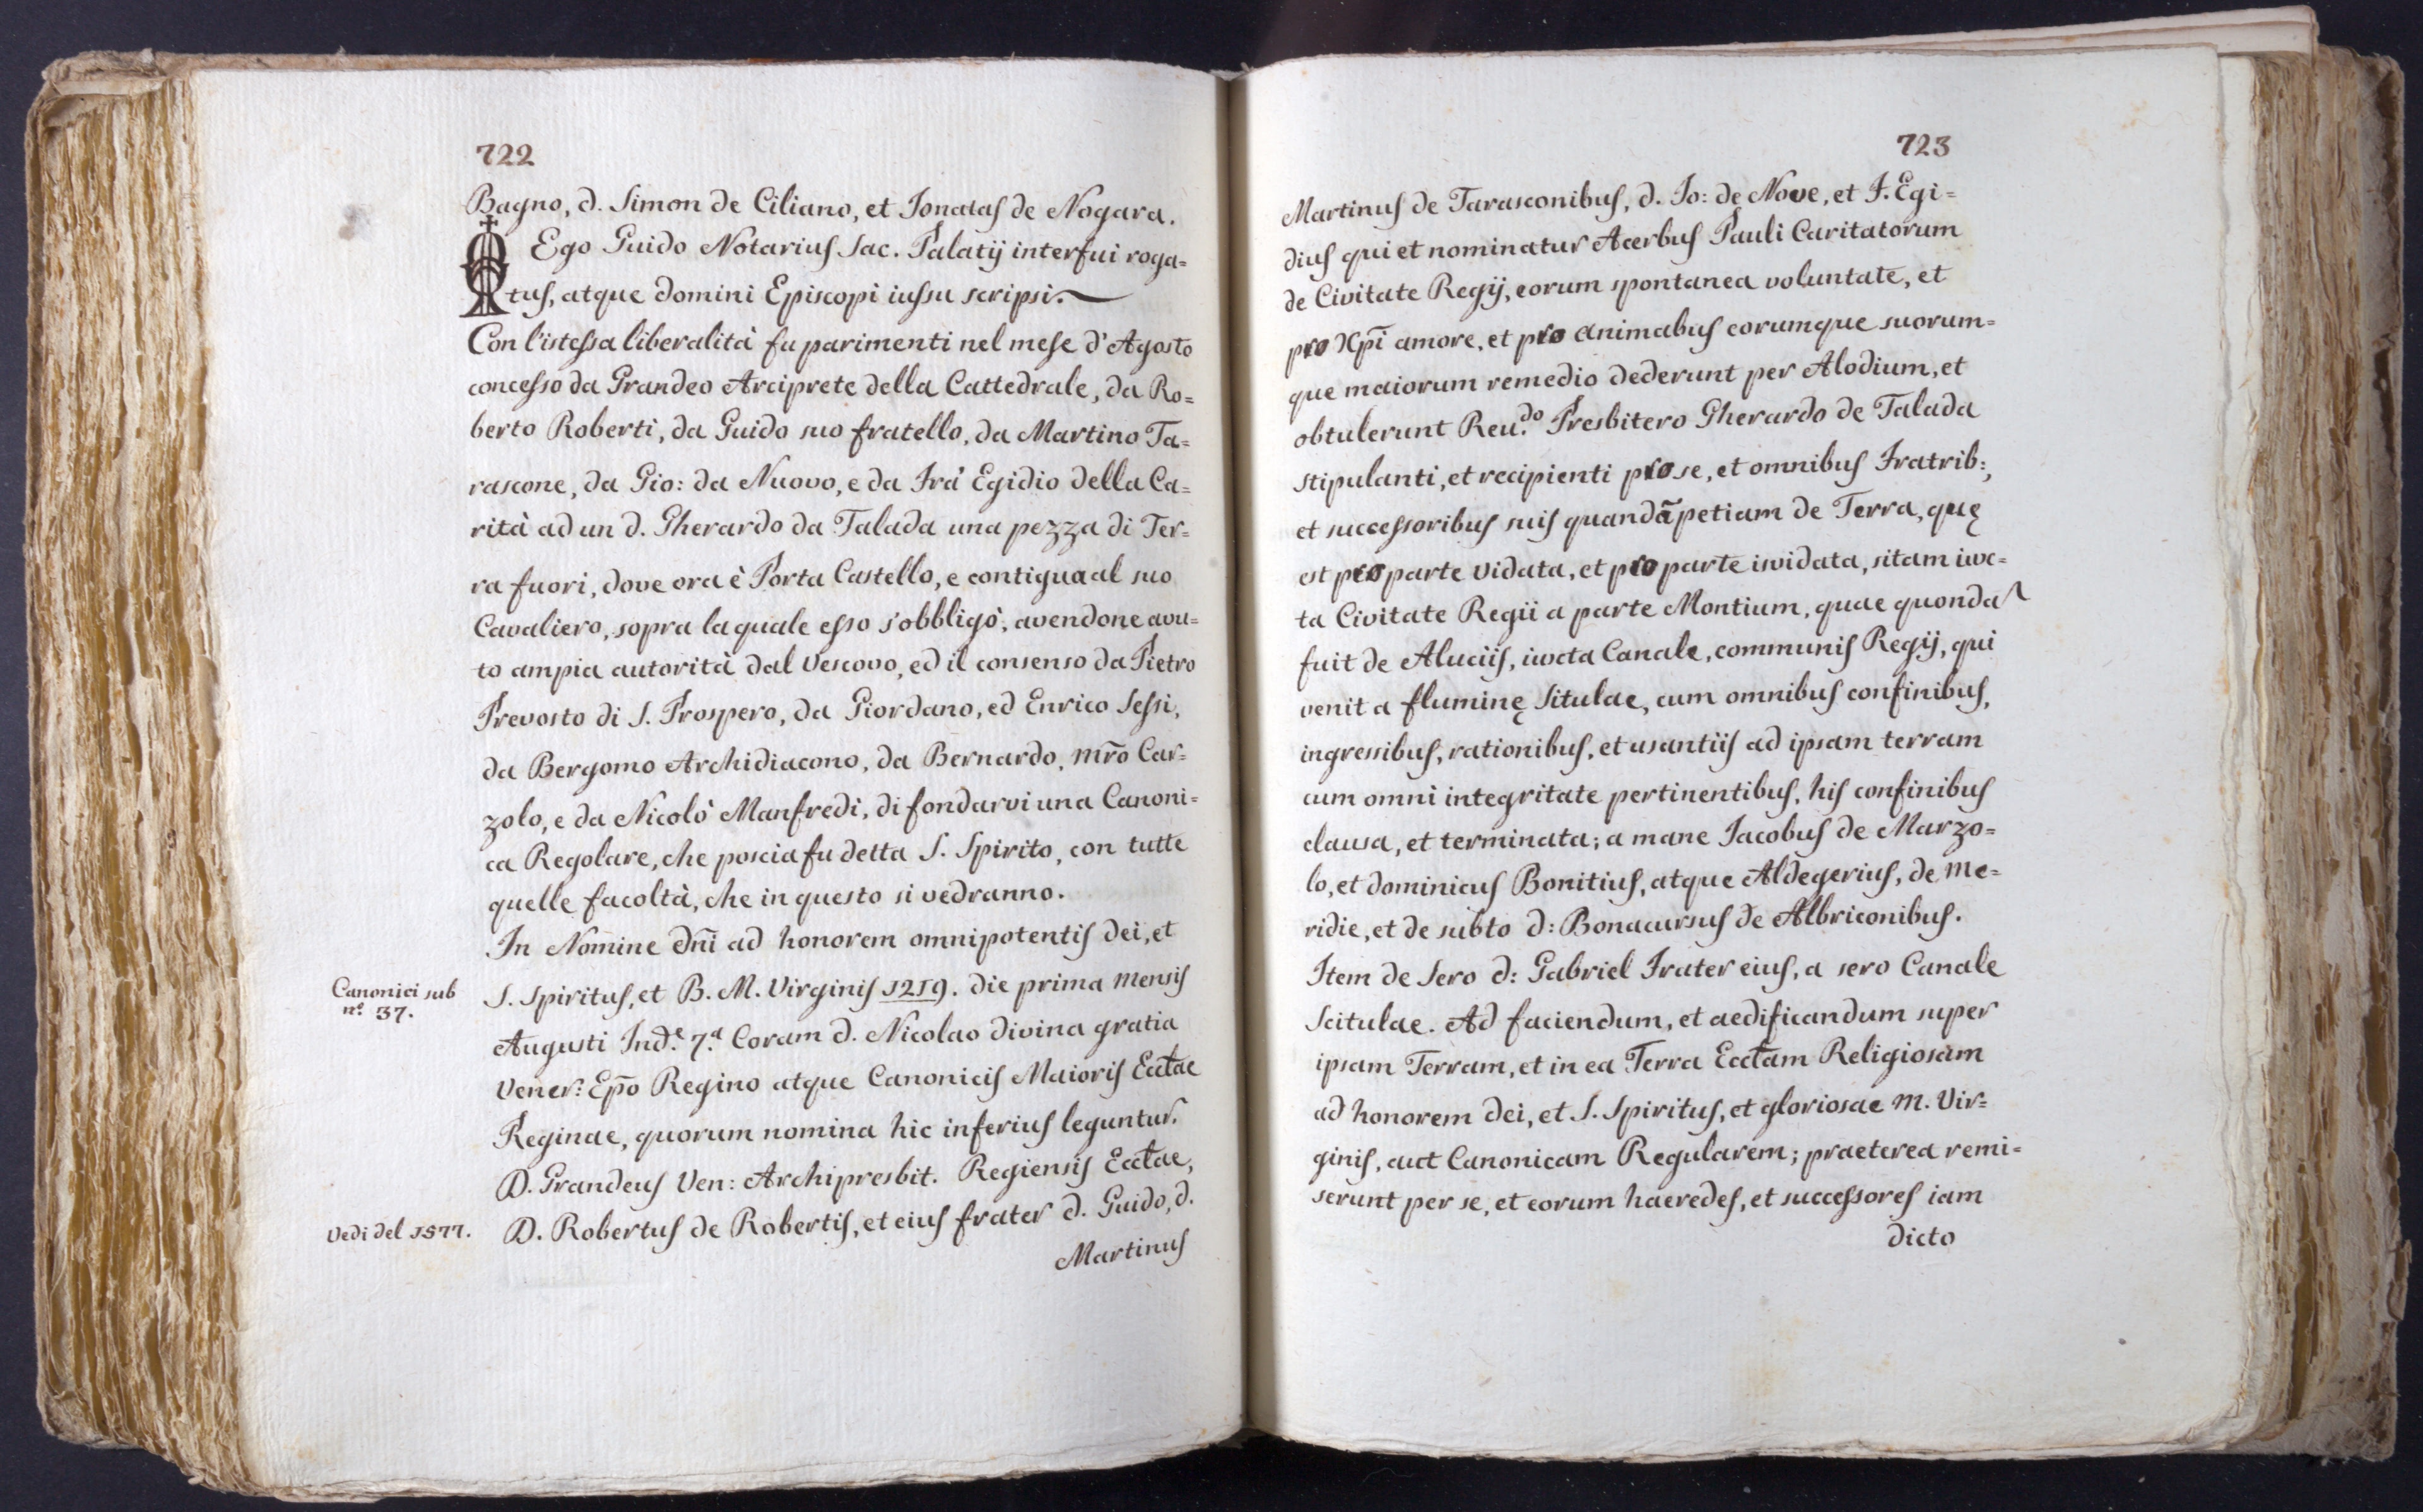 722
Bagno, d. Simon de Ciliano, et Ionatas de Nogara.
Ego Guido Notarius Sac. Palatij interfui roga=
tus, atque domini Episcopi iussu scripsi.
Con l'istessa liberalità fu parimenti nel mese d'Agosto
concesso da Grandeo Arciprete della Cattedrale, da Ro=
berto Roberti, da Guido suo fratello, da Martino Ta=
rascone, da Gio: da Nuovo, e da Frà Egidio della Ca=
rità ad un d. Gherardo da Talada una pezza di Ter=
ra fuori, dove ora è Porta Castello, e contigua al suo
Cavaliero, sopra la quale esso s'obbligò, avendone avu=
to ampia autorità dal Vescovo, ed il consenso da Pietro
Prevosto di S. Prospero, da Giordano, ed Enrico Sessi,
da Bergomo Archidiacono, da Bernardo, Mr̃o Car=
zolo, e da Nicolò Manfredi, di fondarvi una Canoni=
ca Regolare, che poscia fu detta S. Spirito, con tutte
quelle facoltà, che in questo si vedranno.
In Nomine dñi ad honorem omnipotentis dei, et
Canonici sub
n.º 37.
S. Spiritus, et B. M. Virginis 1219. die prima mensis
Augusti Ind.e 7.a Coram d. Nicolao divina gratia
Vener: Ep̃o Regino atque Canonicis Maioris Eccłae
Reginae, quorum nomina hic inferius leguntur.
D. Grandeus Ven: Archipresbit. Regiensis Eccłae,
Vedi del 1577.
D. Robertus de Robertis, et eius frater d. Guido, d.
Martinus
723
Martinus de Tarasconibus, d. Io: de Nove, et F. Egi=
dius qui et nominatur Acerbus Pauli Caritatorum
de Civitate Regij, eorum spontanea voluntate, et
pro Xp̃i amore, et pro animabus eorumque suorum=
que maiorum remedio dederunt per Alodium, et
obtulerunt Reu.do Presbitero Gherardo de Talada
stipulanti, et recipienti pro se, et omnibus Fratrib:,
et successoribus suis quandã petiam de Terra, quę
est pro parte vidata, et pro parte isvidata, sitam iux=
ta Civitate Regii a parte Montium, quae quonda
fuit de Aluciis, iuxta Canale, communis Regij, qui
venit a fluminę Situlae, cum omnibus confinibus,
ingressibus, rationibus, et usantiis ad ipsam terram
cum omni integritate pertinentibus, his confinibus
clausa, et terminata; a mane Iacobus de Marzo=
lo, et dominicus Bonitius, atque Aldegerius, de me=
ridie, et de subto d: Bonacursus de Albriconibus.
Item de Sero d: Gabriel Frater eius, a sero Canale
Scitulae. Ad faciendum, et aedificandum super
ipsam Terram, et in ea Terra Eccłam Religiosam
ad honorem dei, et S. Spiritus, et gloriosae M. Vir=
ginis, aut Canonicam Regularem; praeterea remi=
serunt per se, et eorum haeredes, et successores iam
dicto